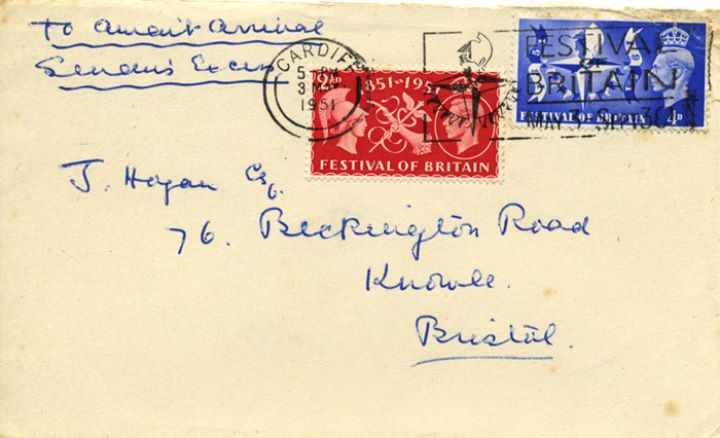 To await arrival
CARDIFF
5 - PM
3 MAY
1951
FESTIVAL
OF
BRITAIN
MAY 3 - SEPT 30
1851-1951
FESTIVAL OF BRITAIN
FESTIVAL OF BRITAIN 4D
J. Hogan Esq.
76. Beckington Road
Knowle.
Bristol.